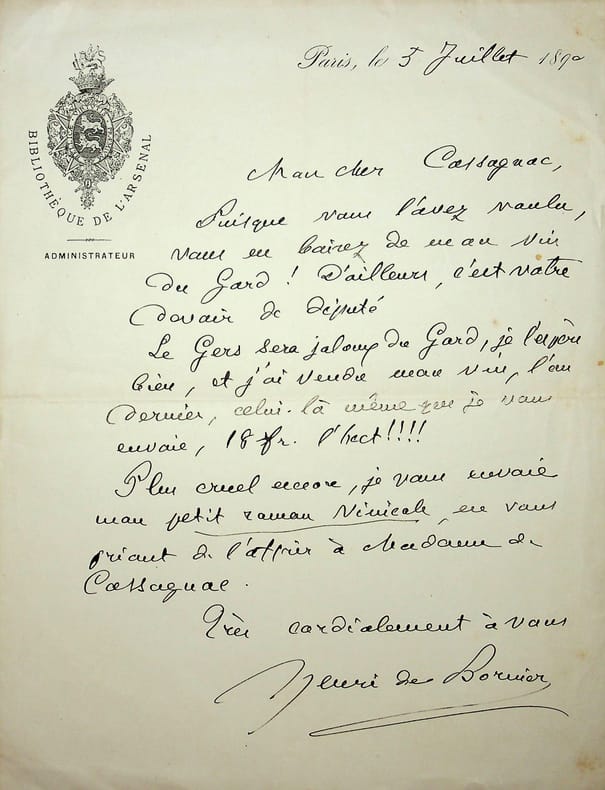 Paris, le 5 Juillet 1890
BIBLIOTHÈQUE DE L'ARSENAL
ADMINISTRATEUR
Mon cher Cassagnac,
Puisque vous l'avez voulu,
vous en boirez de mon vin
du Gard ! D'ailleurs, c'est votre
devoir de député
Le Gers sera jaloux du Gard, je l'espère
bien, et j'ai vendu mon vin, l'an
dernier, celui-là même que je vous
envoie, 18 fr. l'hect!!!!
Plus cruel encore, je vous envoie
mon petit roman Nimicole, en vous
priant de l'offrir à Madame de
Cassagnac.
Très cordialement à vous
Henri de Bornier